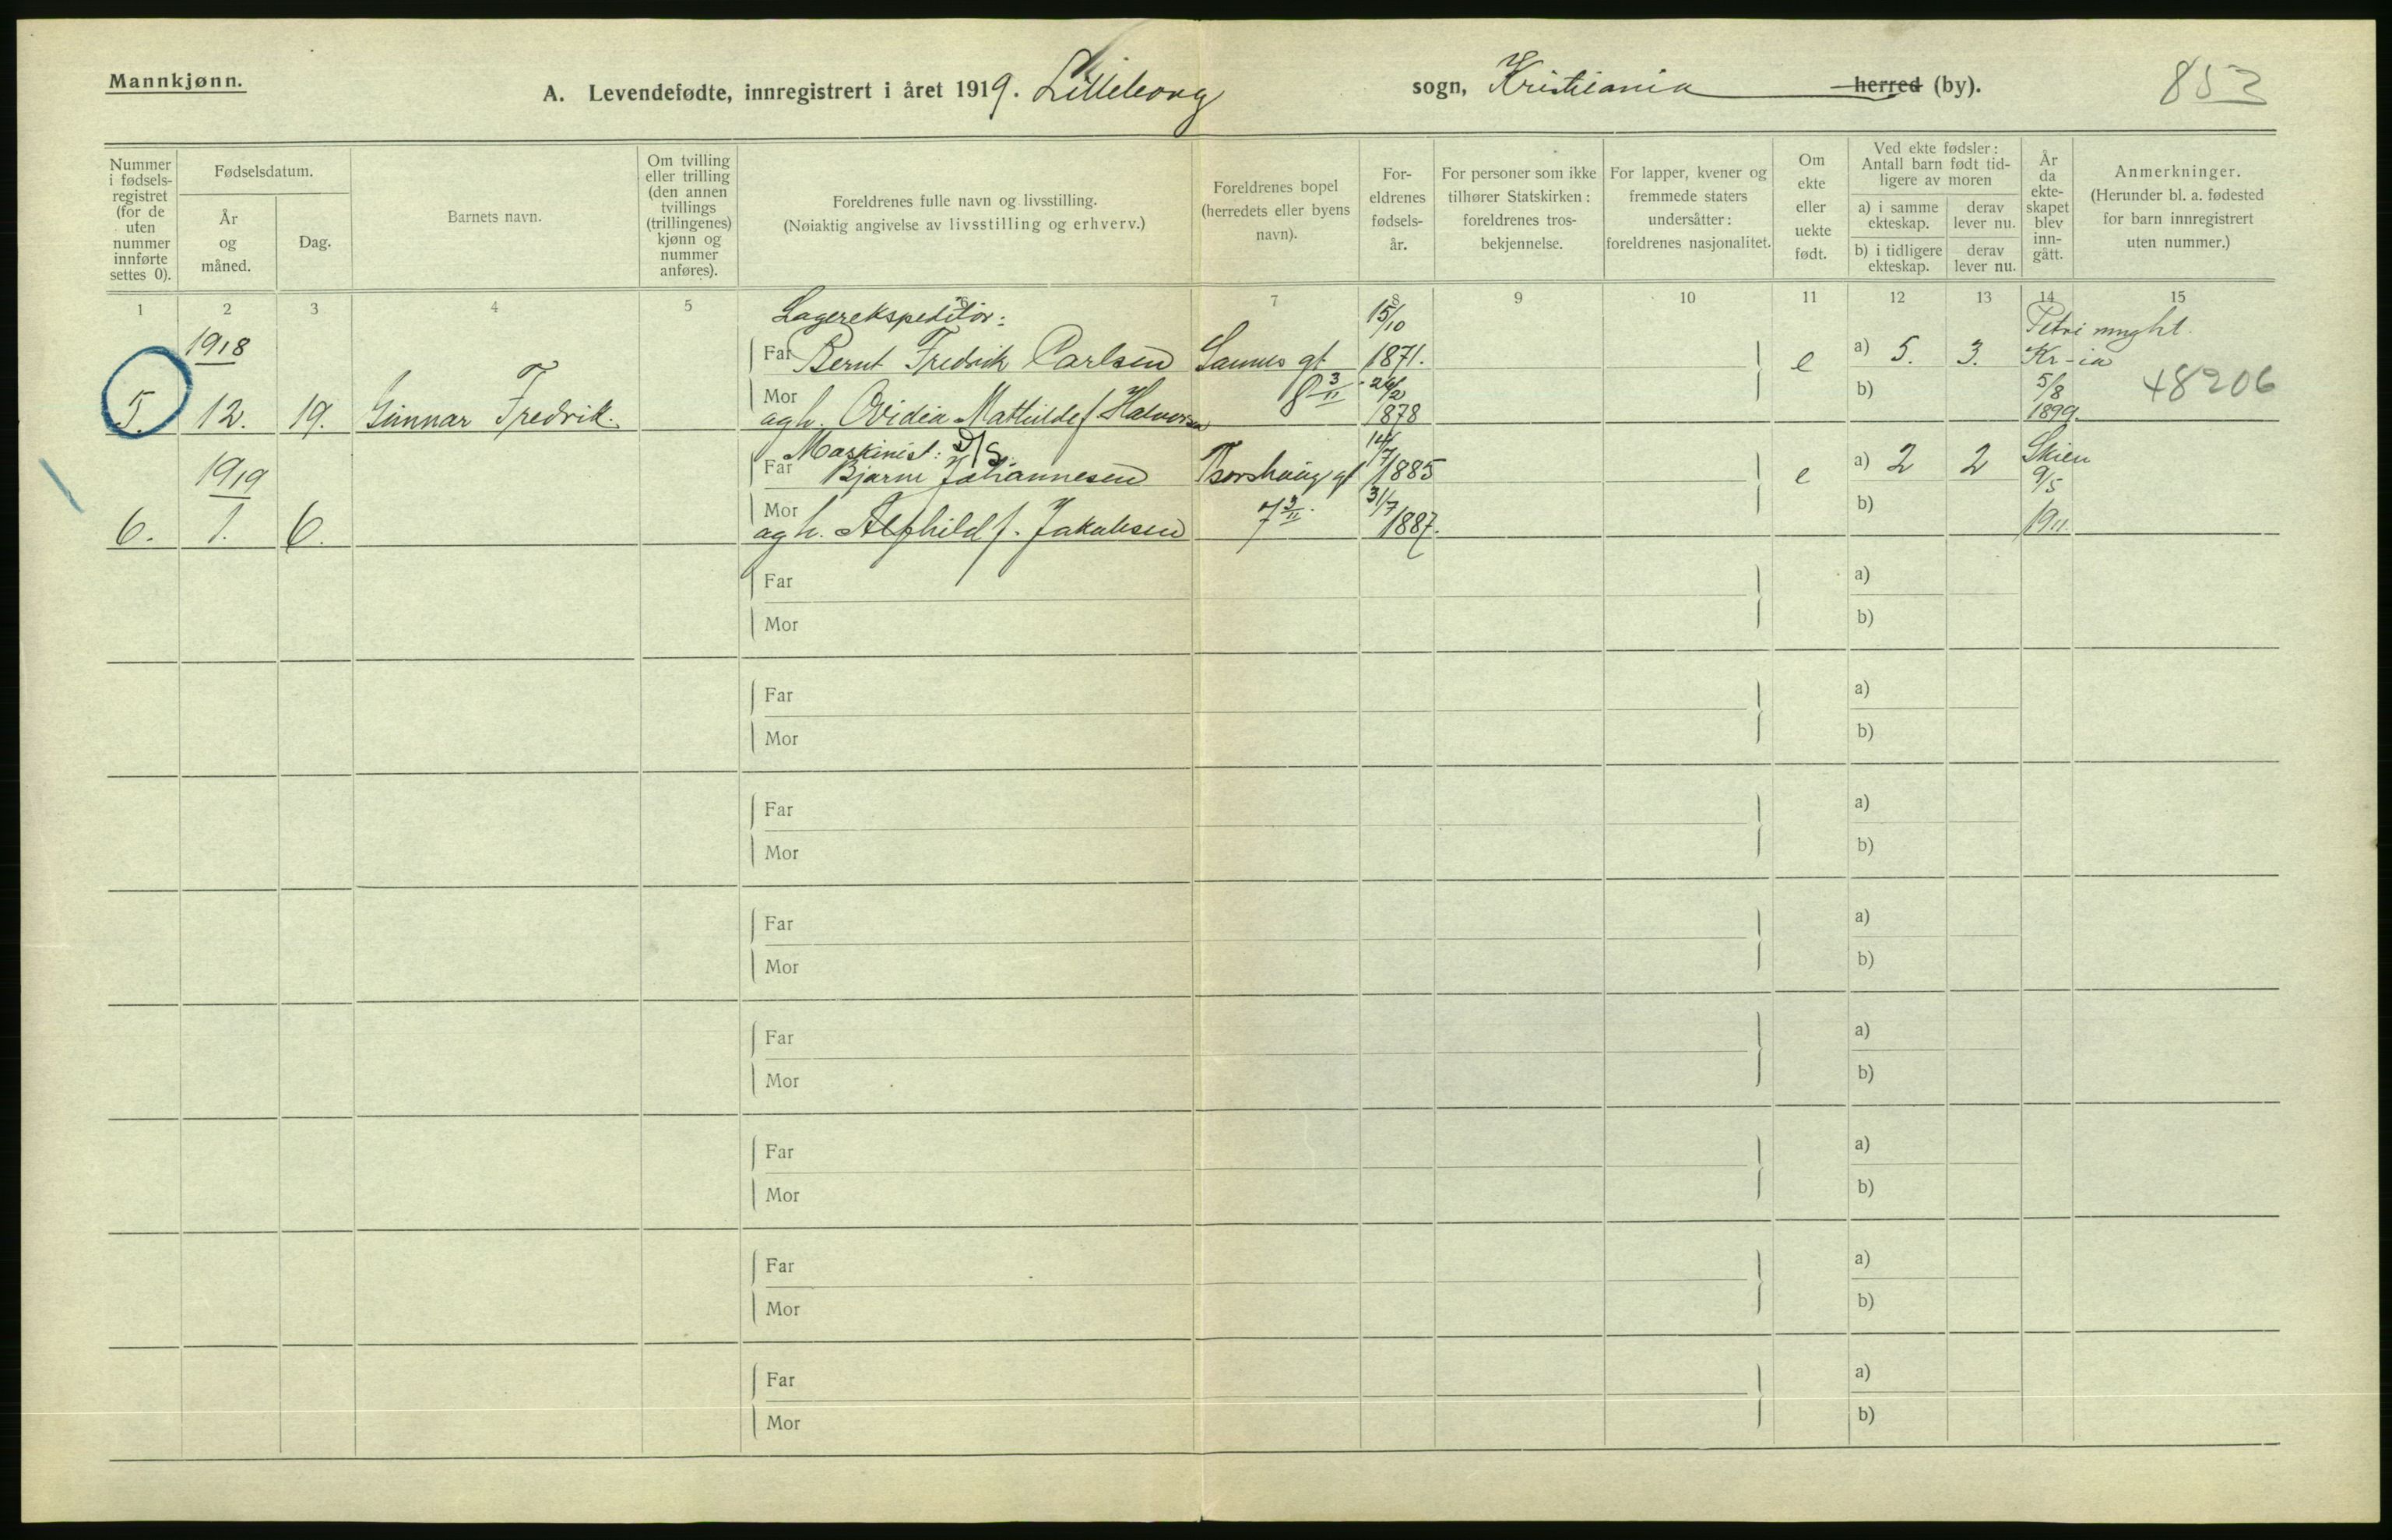 Mannkjønn.
A. Levendefødte, innregistrert i året 1919. Lilleborg sogn, Kristiania herred (by).
853
Nummer i fødsels-registret (for de uten nummer innførte settes 0).
Fødselsdatum.
År og måned.
Dag.
Barnets navn.
Om tvilling eller trilling (den annen tvillings (trillingenes) kjønn og nummer anføres).
Foreldrenes fulle navn og livsstilling.
(Nøiaktig angivelse av livsstilling og erhverv.)
Foreldrenes bopel (herredets eller byens navn).
For-eldrenes fødsels-år.
For personer som ikke tilhører Statskirken: foreldrenes tros-bekjennelse.
For lapper, kvener og fremmede staters undersåtter: foreldrenes nasjonalitet.
Om ekte eller uekte født.
Ved ekte fødsler: Antall barn født tid-ligere av moren
a) i samme ekteskap.
derav lever nu.
b) i tidligere ekteskap.
derav lever nu.
År da ekte-skapet blev inn-gått.
Anmerkninger.
(Herunder bl. a. fødested for barn innregistrert uten nummer.)
1 2 3 4 5 6 7 8 9 10 11 12 13 14 15
Lagerekspeditør: 15/10 Petri
1918 Far Bernt Fredrik Carlsen Sannes gt 1871. e a) 5. 3. Kr-ia
Mor 8 3/11 b) 5/8 48206
5. 12. 19. Gunnar Fredrik. agh. Ovidia Mathilde f. Halvorsen 1878 1899.
Maskinist: D/S 14/7 Skien
1919 Far Bjarne Johannesen Torshaug gt 1885 e a) 2 2 9/5
Mor 7 3/11 31/7 b)
6. 1. 6. agh. Alfhild f. Jakobsen 1887. 1911.
Far a)
Mor b)
Far a)
Mor b)
Far a)
Mor b)
Far a)
Mor b)
Far a)
Mor b)
Far a)
Mor b)
Far a)
Mor b)
Far a)
Mor b)